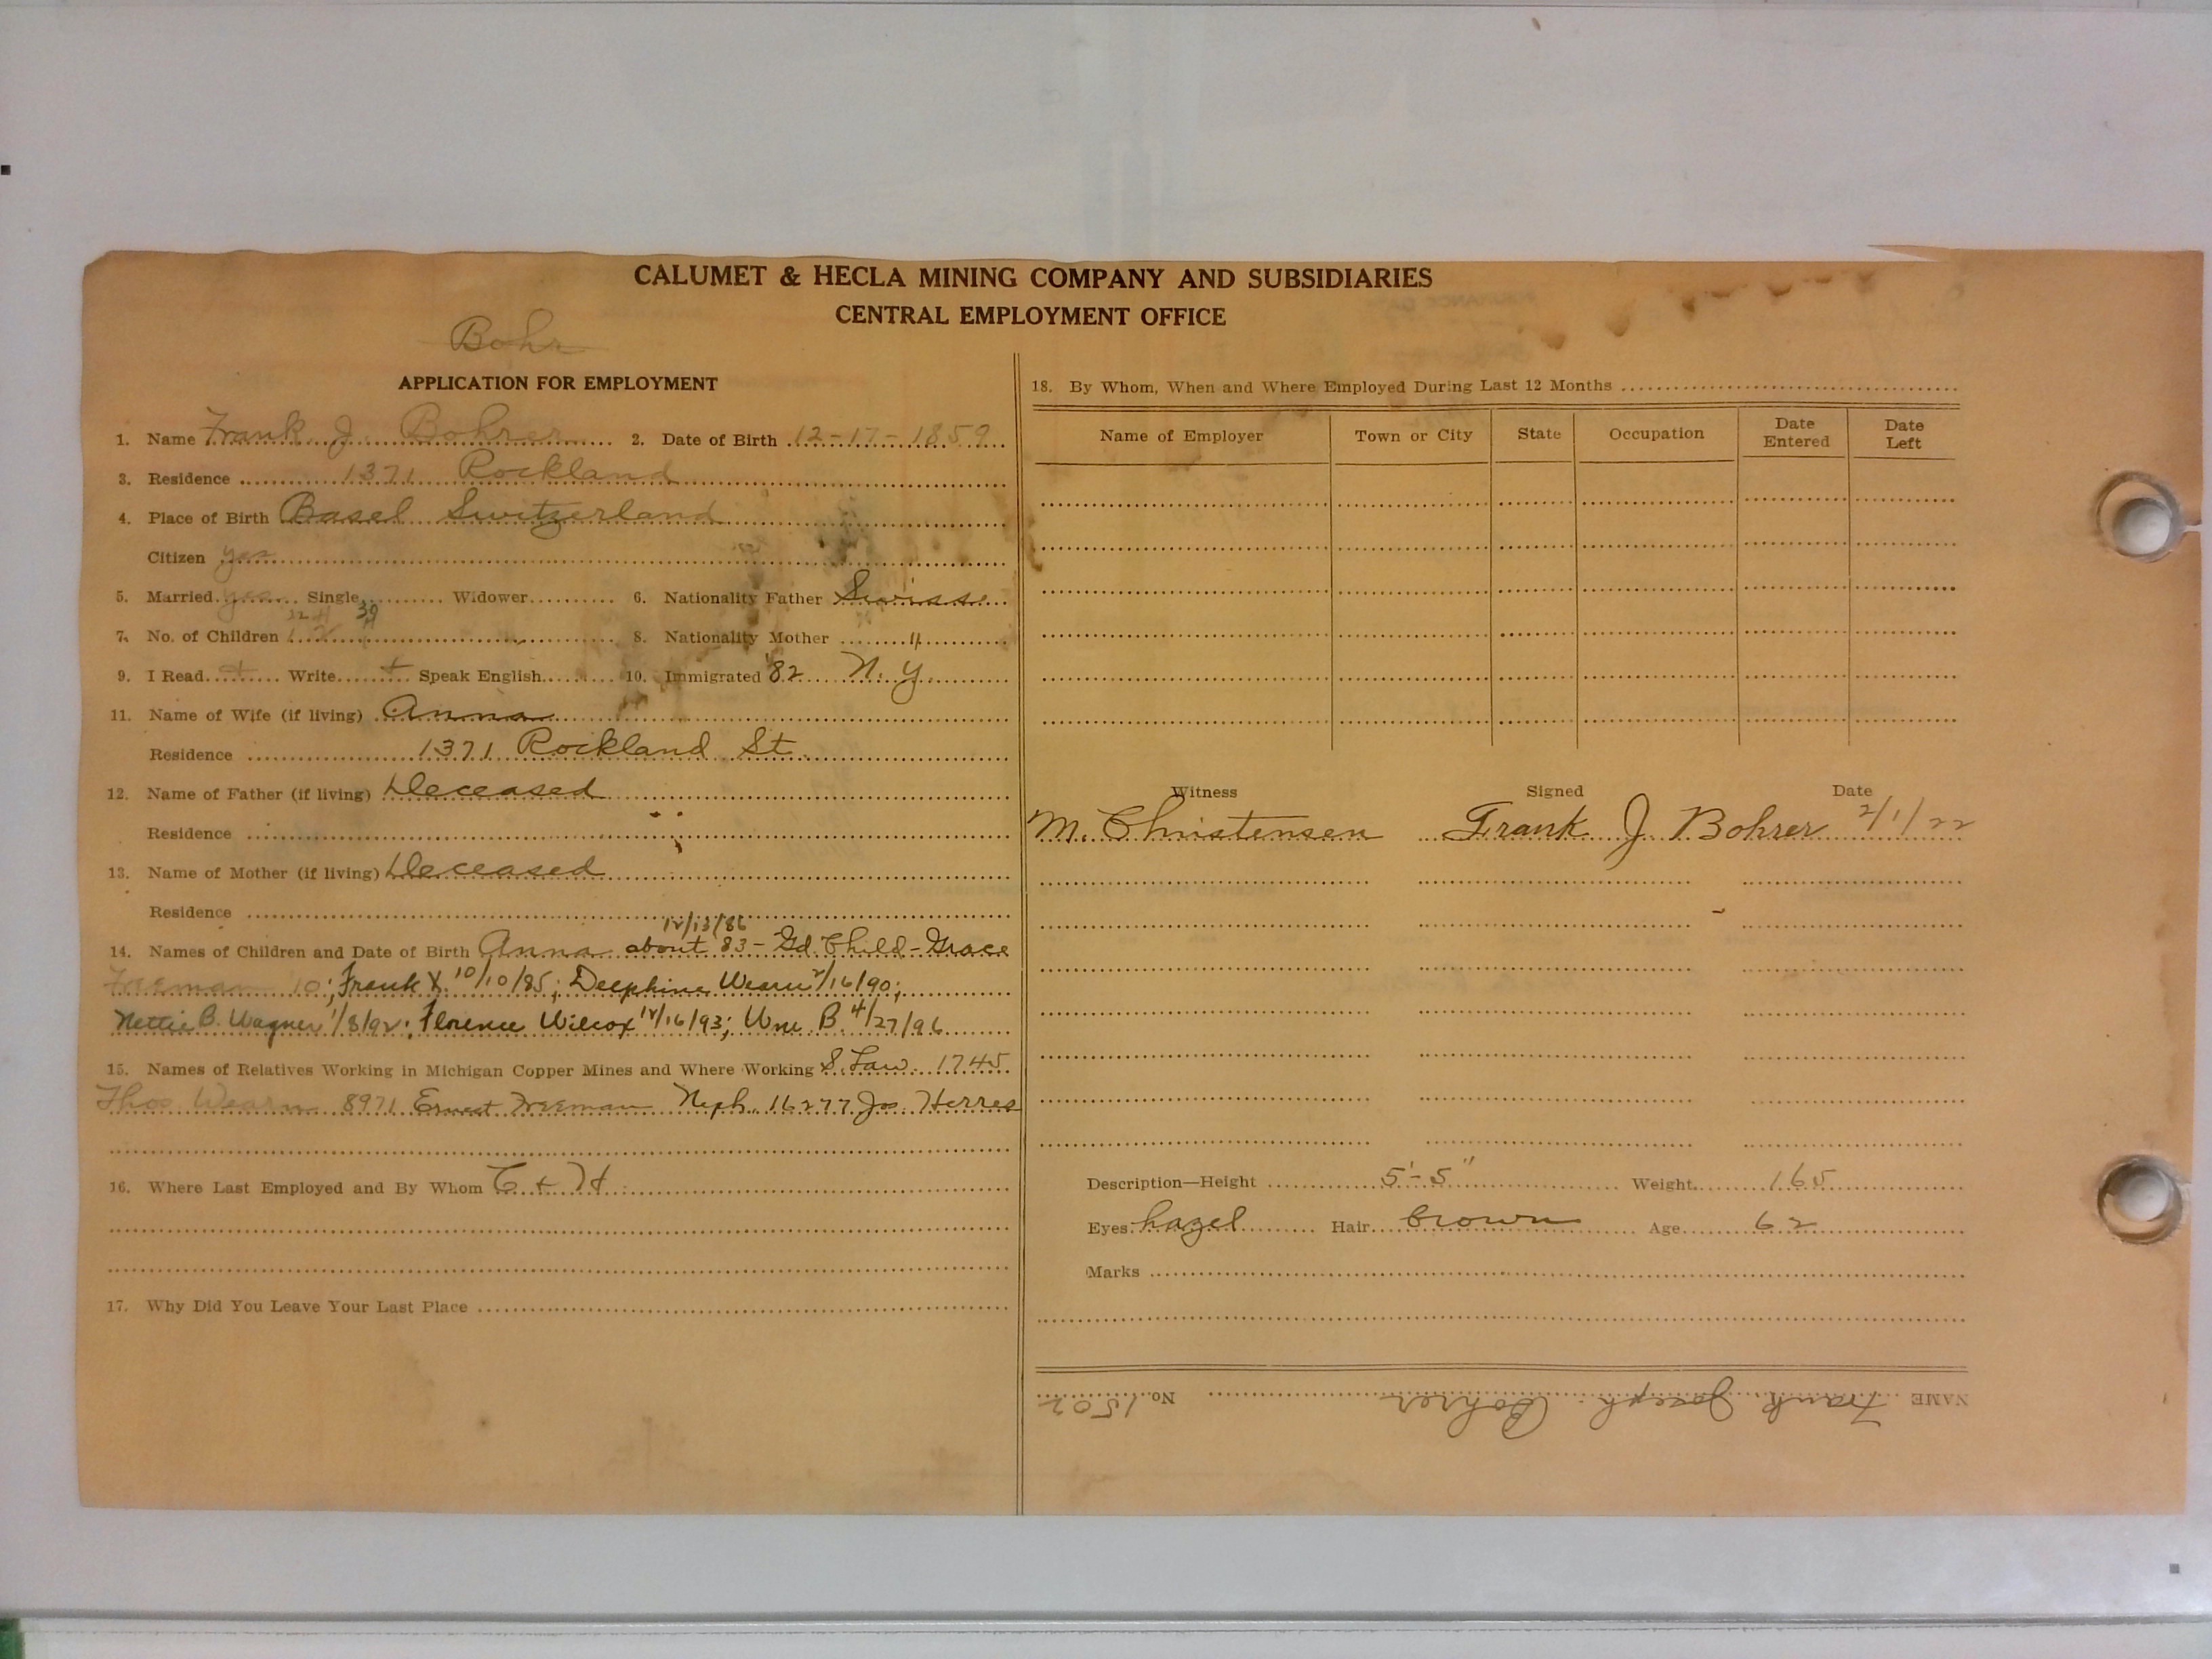 CALUMET & HECLA MINING COMPANY AND SUBSIDIARIES
CENTRAL EMPLOYMENT OFFICE
Bohr
APPLICATION FOR EMPLOYMENT
1. Name Frank J. Bohrer 2. Date of Birth 12-17-1859
3. Residence 1371 Rockland
4. Place of Birth Basel Switzerland
Citizen yes
5. Married yes Single Widower 6. Nationality Father Swisse
7. No. of Children 8. Nationality Mother "
9. I Read + Write + Speak English 10. Immigrated '82 N.Y.
11. Name of Wife (if living) Anna
Residence 1371 Rockland St.
12. Name of Father (if living) Deceased
Residence
13. Name of Mother (if living) Deceased
Residence
12/13/86
14. Names of Children and Date of Birth Anna about 83 - Gd. Child - Grace
Freeman 10; Frank X. 10/10/85; Delphine Wearn 2/16/90;
Nettie B. Wagner 1/8/92; Florence Wilcox 12/16/93; Wm. B. 4/27/96
15. Names of Relatives Working in Michigan Copper Mines and Where Working S. Law. 1745
Thos. Wearn 8971 Ernest Freeman Neph. 16277 Jos. Herres
16. Where Last Employed and By Whom C + H
17. Why Did You Leave Your Last Place
18. By Whom, When and Where Employed During Last 12 Months
Name of Employer Town or City State Occupation Date Entered Date Left
Witness Signed Date
M. Christensen Frank J Bohrer 2/1/22
Description—Height 5'-5" Weight 165
Eyes hazel Hair brown Age 62
Marks
NAME Frank Joseph Bohrer No. 1502